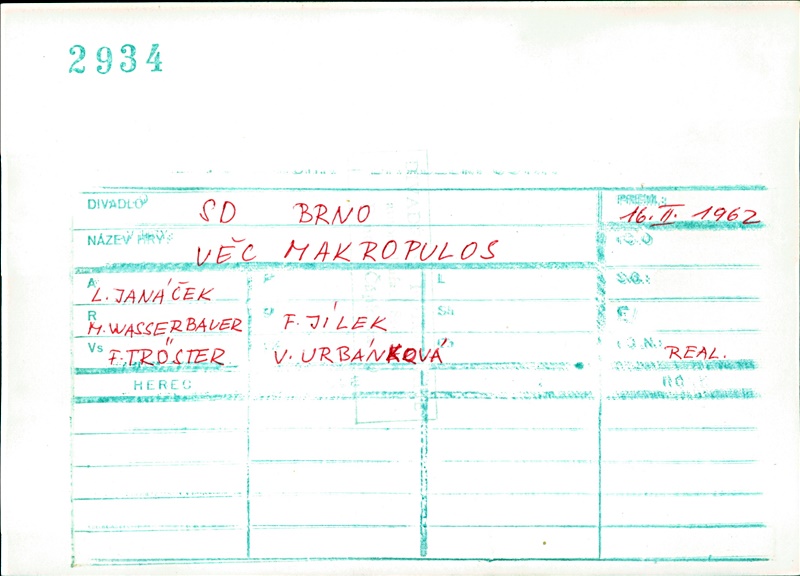 2934
DIVADLO SD BRNO PREM.: 16. II. 1962
NÁZEV HRY: VĚC MAKROPULOS
A L. JANÁČEK P L
R M. WASSERBAUER F. JÍLEK
Vs F. TRÖSTER V. URBÁNKOVÁ REAL.
HEREC